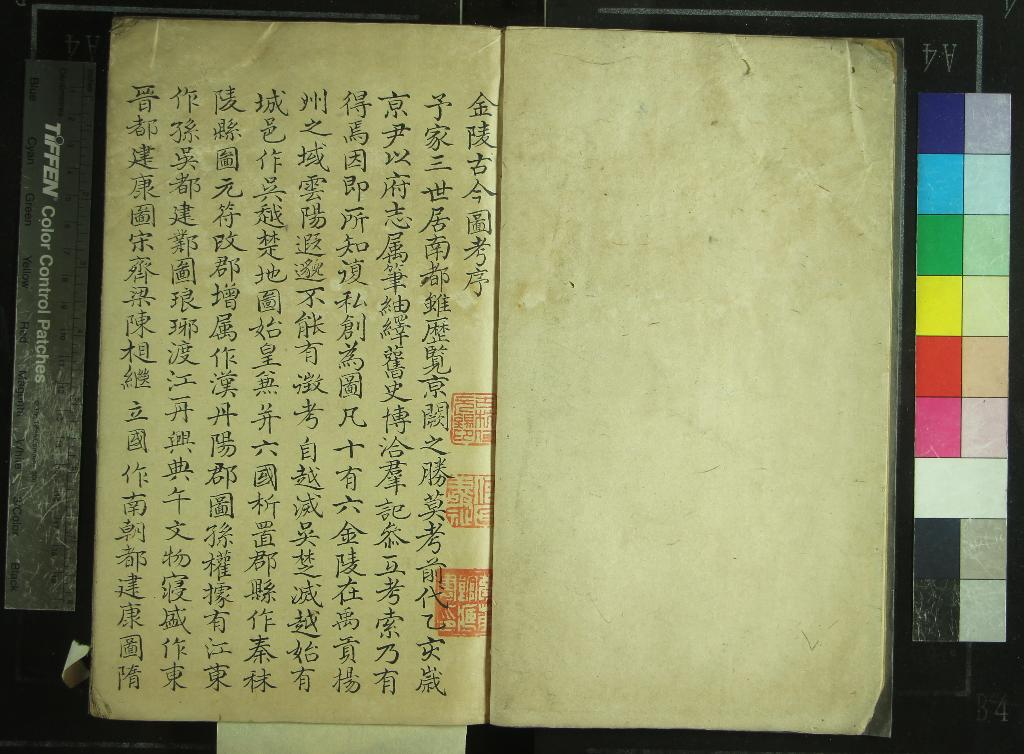 金陵古今圖考序
予家三世居南都雖歷覽京闕之勝莫考前代乙亥歲
京尹以府志属筆紬繹舊史博洽羣記叅互考索乃有
得焉因即所知湏私創為圖凡十有六金陵在禹貢揚
州之域雲陽遐邈不能有徵考自越滅吳楚滅越始有
城邑作吳越楚地圖始皇兼并六國析置郡縣作秦秣
陵縣圖元符改郡增属作漢丹陽郡圖孫權據有江東
作孫吳都建鄴圖琅琊渡江再興典午文物寖盛作東
晉都建康圖宋齊梁陳相繼立國作南朝都建康圖隋
TIFFEN Color Control Patches
Blue
Cyan
Green
Yellow
Red
Magenta
White
3/Color
Black
A4
A4
B4